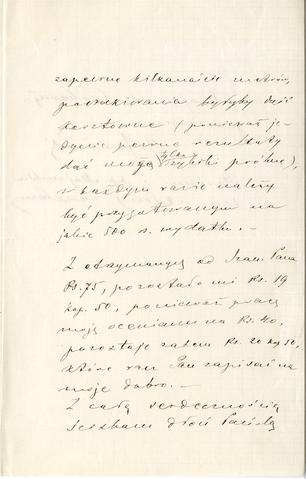 zapewne kilkanaście metrów,
poszukiwania byłyby dość
kosztowne (ponieważ je-
dynie pewne rezultaty
dać mogą tylko szybiki próbne),
w każdym razie należy
być przygotowanym na
jakie 500 r. wydatku. —
Z otrzymanych od Szan. Pana
Rs. 75, pozostało mi Rs. 19
kop. 50, ponieważ pracę
moją oceniam na Rs. 40,
pozostaje zatem Rs. 20 kop. 50,
które racz Pan zapisać na
moje dobro. —
Z całą serdecznością
ściskam dłoń Pańską